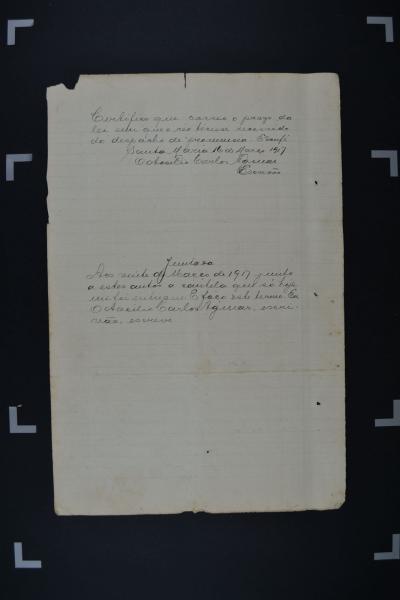 Certifico que correu o prazo da
lei sem que o réo tenha recorrido
do despacho de pronuncia. Dou fé
Santa Maria 16 de Março 1917
O Octacilio Carlos Aguiar
Escrivão
Juntada
Aos vinte de Março de 1917 junto
a estes autos a cautela que só hoje
me foi entregue. E faço este termo. Eu
Octacilio Carlos Aguiar, escri-
vão, escrevi